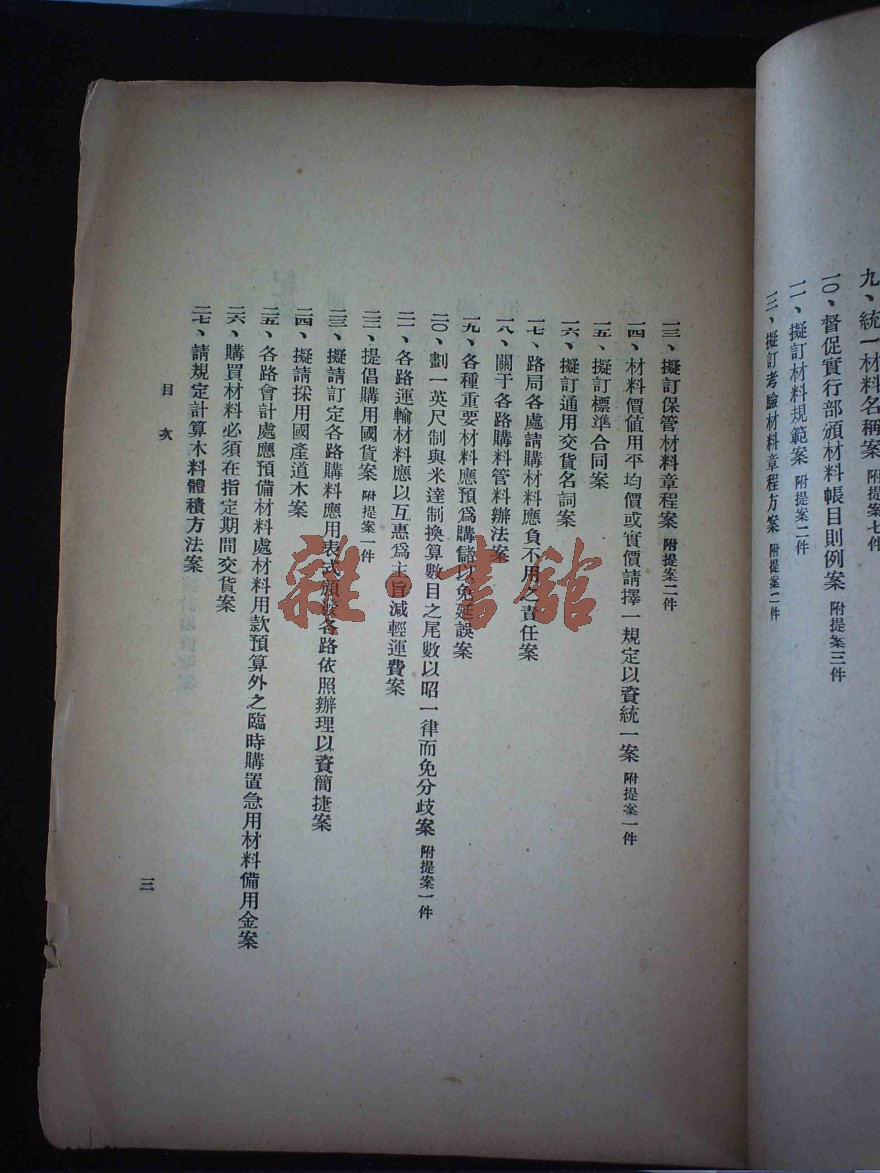 九、統一材料名稱案 附提案七件
一〇、督促實行部頒材料帳目則例案 附提案三件
一一、擬訂材料規範案 附提案二件
一二、擬訂考驗材料章程方案 附提案二件
一三、擬訂保管材料章程案 附提案二件
一四、材料價値用平均價或實價請擇一規定以資統一案 附提案一件
一五、擬訂標準合同案
一六、擬訂通用交貨名詞案
一七、路局各處請購材料應負不用之責任案
一八、關于各路購料管料辦法案
一九、各種重要材料應預爲購儲以免延誤案
二〇、劃一英尺制與米達制換算數目之尾數以昭一律而免分歧案 附提案一件
二一、各路運輸材料應以互惠爲主旨減輕運費案
二二、提倡購用國貨案 附提案一件
二三、擬請訂定各路購料應用表式頒發各路依照辦理以資簡捷案
二四、擬請採用國產道木案
二五、各路會計處應預備材料處材料用款預算外之臨時購置急用材料備用金案
二六、購買材料必須在指定期間交貨案
二七、請規定計算木料體積方法案
目次
三
雜·書館